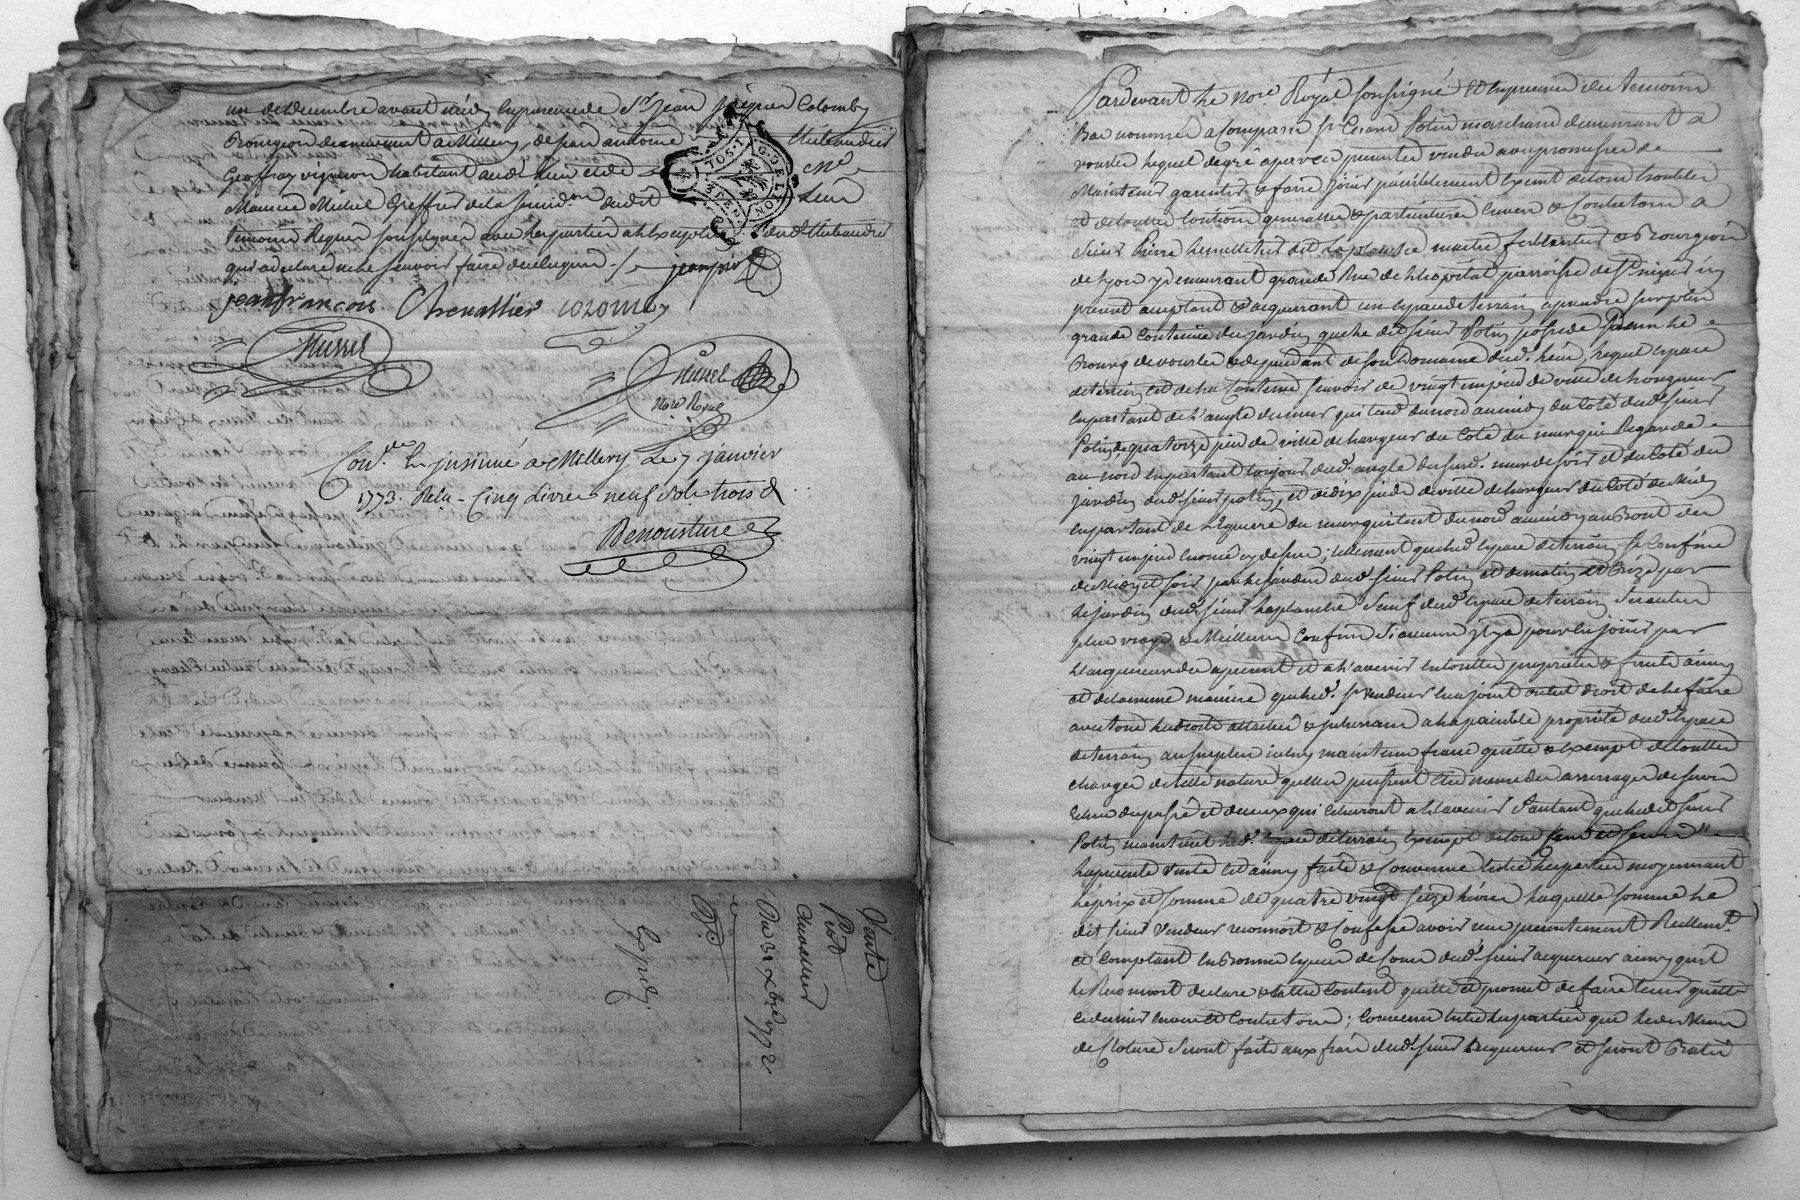 un decembre avant midy En presence de Sr Jean Colomby
Bourgeois demeurant a Millery, de Jean antoine Thibaudier
Geoffray vigneron habitant aud. lieu et de
Maurice Michel Greffier de la dudit lieu
temoins Requis soussignes avec les parties a l'Exception dud Thibaudier
qui a declaré ne le sçavoir faire de ce Enquis ./.
jean françois Chenallier colomby
Not. Royal
Con. Et jnsinué a Millery Le 7 janvier
1773. Reçu Cinq Livres neuf sols trois d
Vente
Piot
acquereur
Du 31 Xbre 1772
Expedié
Pardevant Le Nore. Royal soussigné et En presence des temoins
Bas nommés a Comparu sr Cesard Potin marchand demeurant a
vourles Lequel de gré a par ces presentes vendu avec promesse de
Maintenir garentir & faire jouir paisiblement Exempt de tous troubles
et de touttes Evictions generalles & particulieres Envers & Contre tous a
Sieur Pierre dit Laplanche maitre ferblantier & Bourgeois
de Lyon y demeurant grande Rue de L'hopital parroisse de St nizier icy
present acceptant & acquerant un Espace de terrain a prendre sur plus
grande Contenue du jardin que le dit sieur Potin possede dans le
Bourg de vourles & dependant de son Domaine dud. lieu, Lequel Espace
de terrain est de la Contenue sçavoir de vingt un pied de ville de longueur
En partant de L'angle du mur qui tend du nord au midy du Coté dud. sieur
Potin, de quatorze pied de ville de largeur du Coté du mur qui Regarde
au nord En partant toujours dud. angle dusd. mur de soir et du Coté du
jardin dud. sieur potin, et de dix pieds de ville de largeur du Coté de Midy
En partant de L'Equerre du mur qui tend du nord au midy au Bout des
vingt un pied Enoncé cy dessus; tellement que led. Espace de terrain se Confine
de Midy et soir par le jardin dud. sieur Potin et de matin et Bize par
le jardin dud. sieur Laplanche Sauf dud. Espace de terrain ses autres
plus vrays & Meilleurs Confins si aucuns jl y a pour En jouir par
L'acquereur des apresent et a L'avenir En toutte proprieté & fruits ainsy
et de la meme maniere que led. sr vendeur En a joui ou eut droit de Le faire
avec tous Les droits attachés & jnherants a la paisible proprieté dud. Espace
de terrain au surplus jcelluy maintenu franc quitte & Exempt de touttes
charges de telle nature qu'elles puissent Etre meme des arrerages de servis
Echus du passé et de ceux qui Echeront a L'avenir d'autant que ledit sieur
Potin maintient led. Espace de terrain Exempt de tous
La presente vente est ainsy faite & Convenue Entre Les parties moyennant
Le prix et somme de quatre vingt seize livres Laquelle somme Le
dit sieur vendeur reconnoit & Confesse avoir reçu presentement Reellemt.
et Comptant En Bonnes Especes de Cours dud. sieur acquereur ainsy qu'il
Le Reconnoit declare & s'En Contente quitte et promet de faire tenir quitte
ce dernier Envers et Contre tous; Convenu Entre Les parties que Les Murs
de Cloture seront faits aux frais dud. sieur acquereur et seront Batis